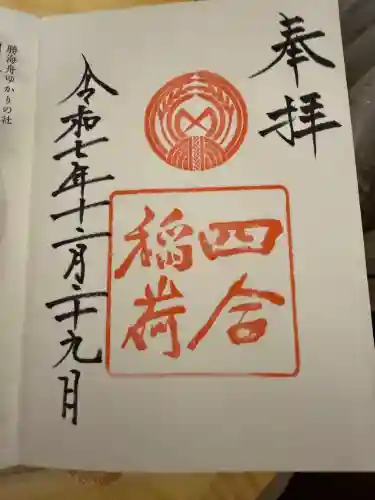 奉拝
四合
稲荷
令和七年十二月二十九月
勝海舟ゆかりの社